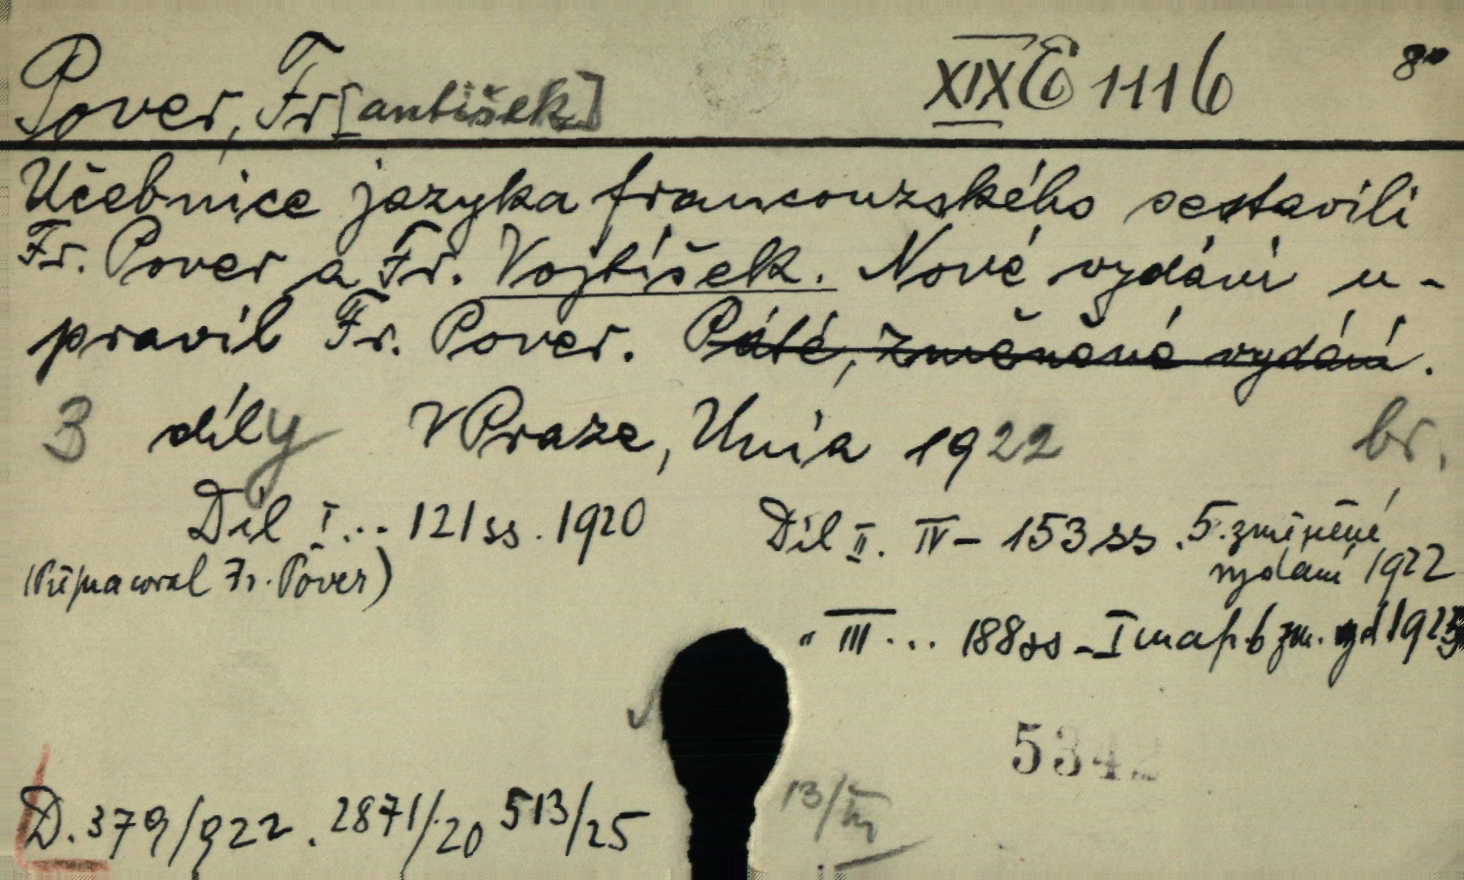 Pover, Fr[antišek] XIX E 1116 8°
Učebnice jazyka francouzského sestavili
Fr. Pover a Fr. Vojtíšek. Nové vydání u-
pravil Fr. Pover. Páté, změněné vydání.
3 díly V Praze, Unia 1922 br.
Díl I... 121 ss. 1920 Díl II. IV - 153 ss. 5. změněné
(Přepracoval Fr. Pover) vydání 1922
" III... 188 ss - I map. 6 zm. vyd 1925
5342
D. 379/922. 2871/20 513/25 13/